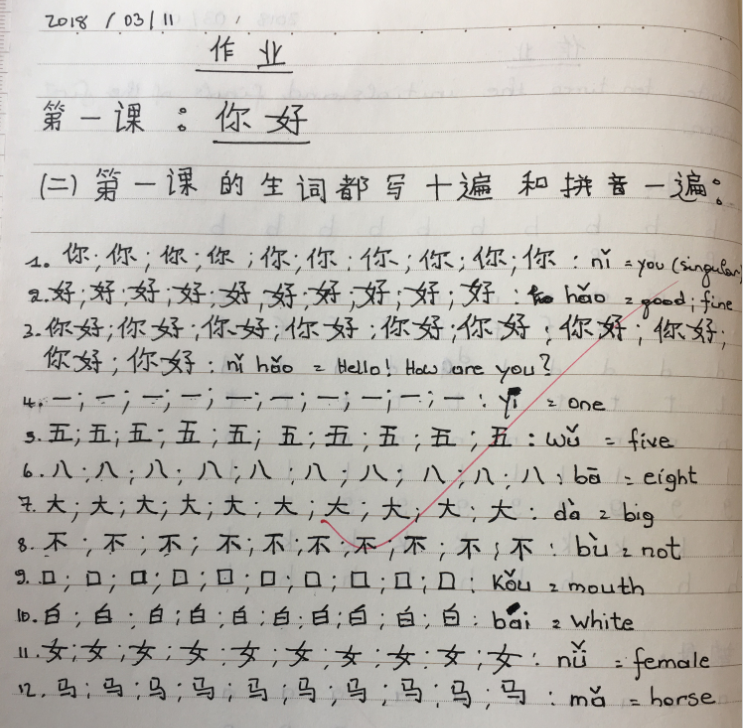 2018 / 03 / 11
作 业
第 一 课 : 你 好
(二) 第 一 课 的 生 词 都 写 十 遍 和 拼 音 一 遍 :
1. 你; 你; 你; 你; 你; 你; 你; 你; 你; 你 : nǐ = you (singular)
2. 好; 好; 好; 好; 好; 好; 好; 好; 好; 好 : hǎo = good; fine
3. 你好; 你好; 你好; 你好; 你好; 你好; 你好; 你好;
你好; 你好 : nǐ hǎo = Hello! How are you?
4. 一; 一; 一; 一; 一; 一; 一; 一; 一; 一 : yī = one
5. 五; 五; 五; 五; 五; 五; 五; 五; 五; 五 : wǔ = five
6. 八; 八; 八; 八; 八; 八; 八; 八; 八; 八 : bā = eight
7. 大; 大; 大; 大; 大; 大; 大; 大; 大; 大 : dà = big
8. 不; 不; 不; 不; 不; 不; 不; 不; 不; 不 : bù = not
9. 口; 口; 口; 口; 口; 口; 口; 口; 口; 口 : Kǒu = mouth
10. 白; 白; 白; 白; 白; 白; 白; 白; 白; 白 : bái = white
11. 女; 女; 女; 女; 女; 女; 女; 女; 女; 女 : nǚ = female
12. 马; 马; 马; 马; 马; 马; 马; 马; 马; 马 : mǎ = horse